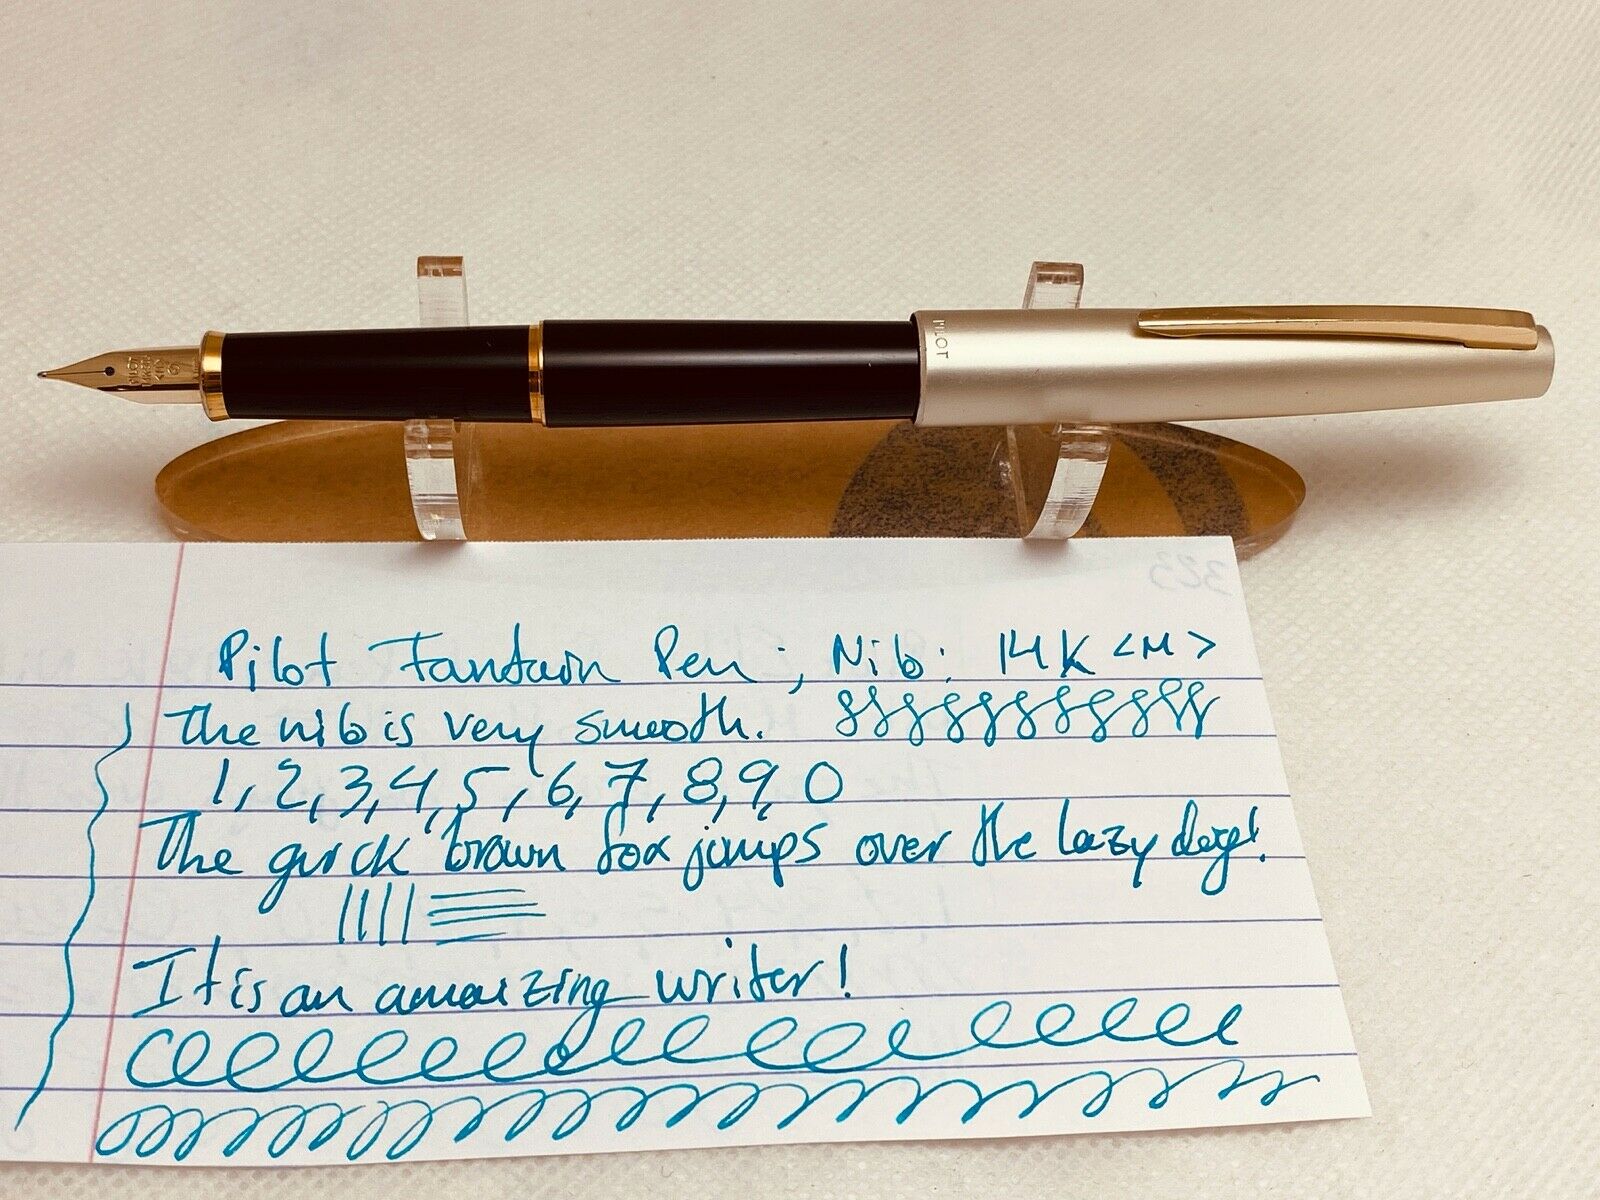 PILOT
PILOT
323
Pilot Fantain Pen; Nib: 14K <M>
The nib is very smooth.
1, 2, 3, 4, 5, 6, 7, 8, 9, 0
The quick brown fox jumps over the lazy dog!
It is an amaizing writer!